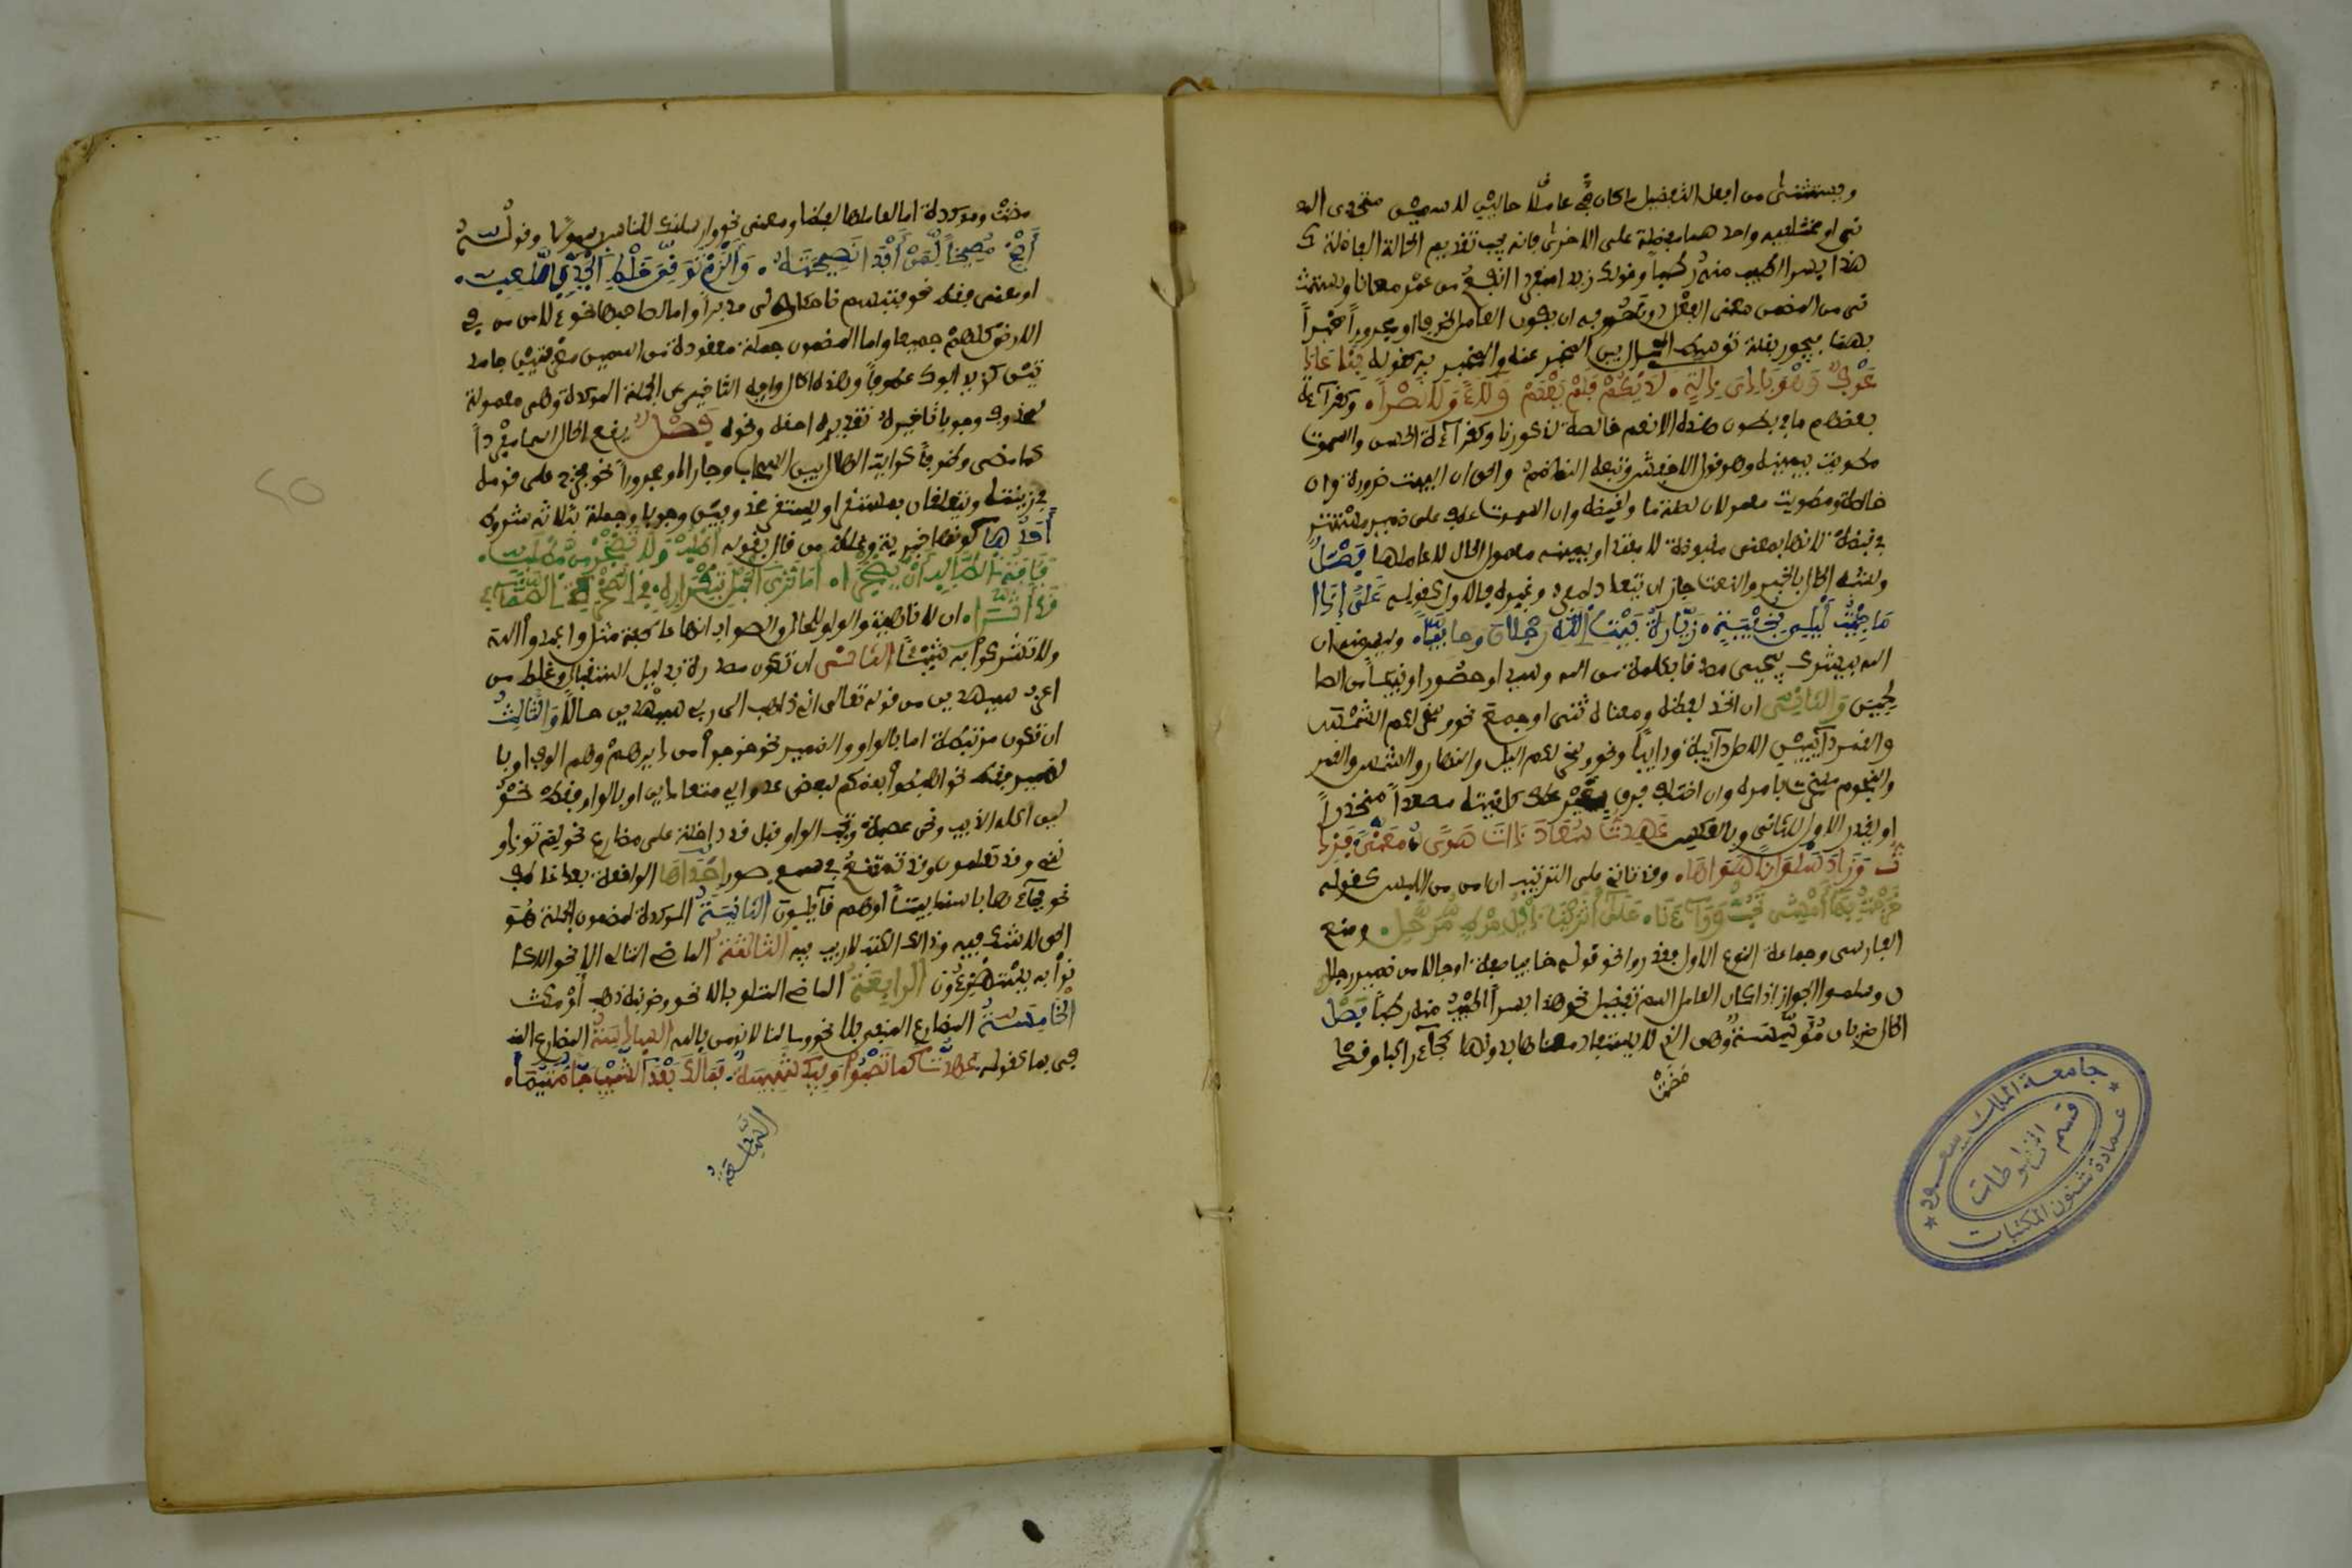 ويستثنى من افعل التفضيل ما كان عاملا في حالين لاسمين متحدى المعـ
نى او مختلفيه واحدهما مفضلة على الاخرى فانه يجب تقديم الحالة الفاضلة كـ
هذا بسرا اطيب منه رطبا وقولك زيد مفردا انفع من عمرو معانا ويستثـ
نى من المضمن معنى الفعل دون حروفه ان يكون العامل ظرفا او مجرورا مخبرا
بهما فيجوز بقلة توسيط الحال بين المخبر عنه والمخبر به كقوله بنا عاذ
عوف وهو بادى ذلة لديكم فلم يعدم ولاء ولا نصرا وكقراءة
بعضهم ما فى بطون هذه الانعم خالصة لذكورنا وكقراءة الحسن والسموت
مطويت بيمينه وهو قول الاخفش وتبعه الناظم والحق ان البيت ضرورة وان
خالصة ومطويت معمولان لصلة ما ولقبضته وان السموت عطف على ضمير مستتر
فى قبضته لانها بمعنى مقبوضة لا مبتدا وبيمينه معمول الحال لا عاملها فصل
ولشبه الحال بالخبر والنعت جاز ان تتعدد لمفرد وغيره فالاول كقوله على اذا
ما جئت ليلى بخفية زيارة بيت الله رجلان حافيا وليس منه ان
الله يبشرك بيحيى مصدقا بكلمة من الله وسيدا وحصورا ونبيئا من الصا
لحين والثانى ان اتحد لفظه ومعناه ثنى او جمع نحو وسخر لكم الشمس
والقمر دآئبين الاصل دآئبة ودائبا ونحو وسخر لكم اليل والنهار والشمس والقمر
والنجوم مسخرت بامره وان اختلف فرق بغير عطف كلقيته مصعدا منحدرا
ويقدر الاول للثانى وبالعكس عهدت سعاد ذات هوى معنى فزد
ت وزاد سلوانا هواها وقد تاتى على الترتيب ان امن من اللبس كقوله
خرجت بها امشى تجر وراءنا على اثرينا ذيل مرط مرحل ومنع
الفارسى وجماعة النوع الاول فقدروا نحو قوله حافيا صفة او حالا من ضمير رجلا
ن وسلموا الجواز اذا كان العامل اسم تفضيل نحو هذا بسرا اطيب منه رطبا فصل
الحال ضربان مؤسسة وهى التى لا يستفاد معناها بدونها كجآء زيد راكبا وقد
مضت
مضت ومؤكدة اما لعاملها لفظا ومعنى نحو وارسلنك للناس رسولا وقولـه
أصخ مصيخا لمن أبدى نصيحته والزم توقى خلط الجد باللعب
او معنى فقط نحو فتبسم ضاحكا ولى مدبرا واما لصاحبها نحو لامن من فى
الارض كلهم جميعا واما لمضمون جملة معقودة من اسمين معرفتين جامد
ين كزيد ابوك عطوفا وهذه الحال واجبة التاخير عن الجملة المؤكدة وهى معمولة
لمحذوف وجوبا تقديره احقه ونحوه فصل يقع الحال اسما مفردا
كما مضى وظرفا كرايت الهلال بين السحاب وجارا ومجرورا نحو فخرج على قومه
فى زينته ويتعلقان بمستقر او استقر محذوفين وجوبا وجملة بثلاثة شروط
أحدها كونها خبرية وغلط من قال بقوله اطلب ولا تضجر من مطلب
فآفة الطالب أن يضجرا اما ترى الحبل بتكراره فى الصخرة الصماء
قد أثرا ان لا ناهية والواو للحال والصواب انها عاطفة مثل واعبدوا الله
ولا تشركوا به شيئا الثانى ان تكون مصدرة بدليل استقبال وغلط من
اعرب سيهدين من قوله تعالى انى ذاهب الى ربى سيهدين حالا والثالث
ان تكون مرتبطة اما بالواو والضمير نحو خرجوا من ديرهم وهم الوف او با
لضمير فقط نحو اهبطوا بعضكم لبعض عدو اى متعادين او بالواو فقط نحو
لين اكله الذيب ونحن عصبة وتجب الواو قبل قد داخلة على مضارع نحو لم تؤذو
ننى وقد تعلمون وتمتنع فى سبع صور احداها الواقعة بعد عاطف
نحو فجآءها باسنا بيتا او هم قآئلون الثانية المؤكدة لمضمون الجملة هو
الحق لا شك فيه وذالك الكتب لا ريب فيه الثالثة الماضى التالى الا نحو الا كا
نوا به يستهزءون الرابعة الماضى المتلو باو نحو لاضربنه ذهب أو مكث
الخامسة المضارع المنفى بلا نحو وما لنا لا نومن بالله السادسة المضارع المنـ
فى بما كقوله عهدتك ما تصبوا وفيك شبيبة فما لك بعد الشيب صبا متيما
السابعة
جامعة الملك سعود
قسم المخطوطات
عمادة شئون المكتبات